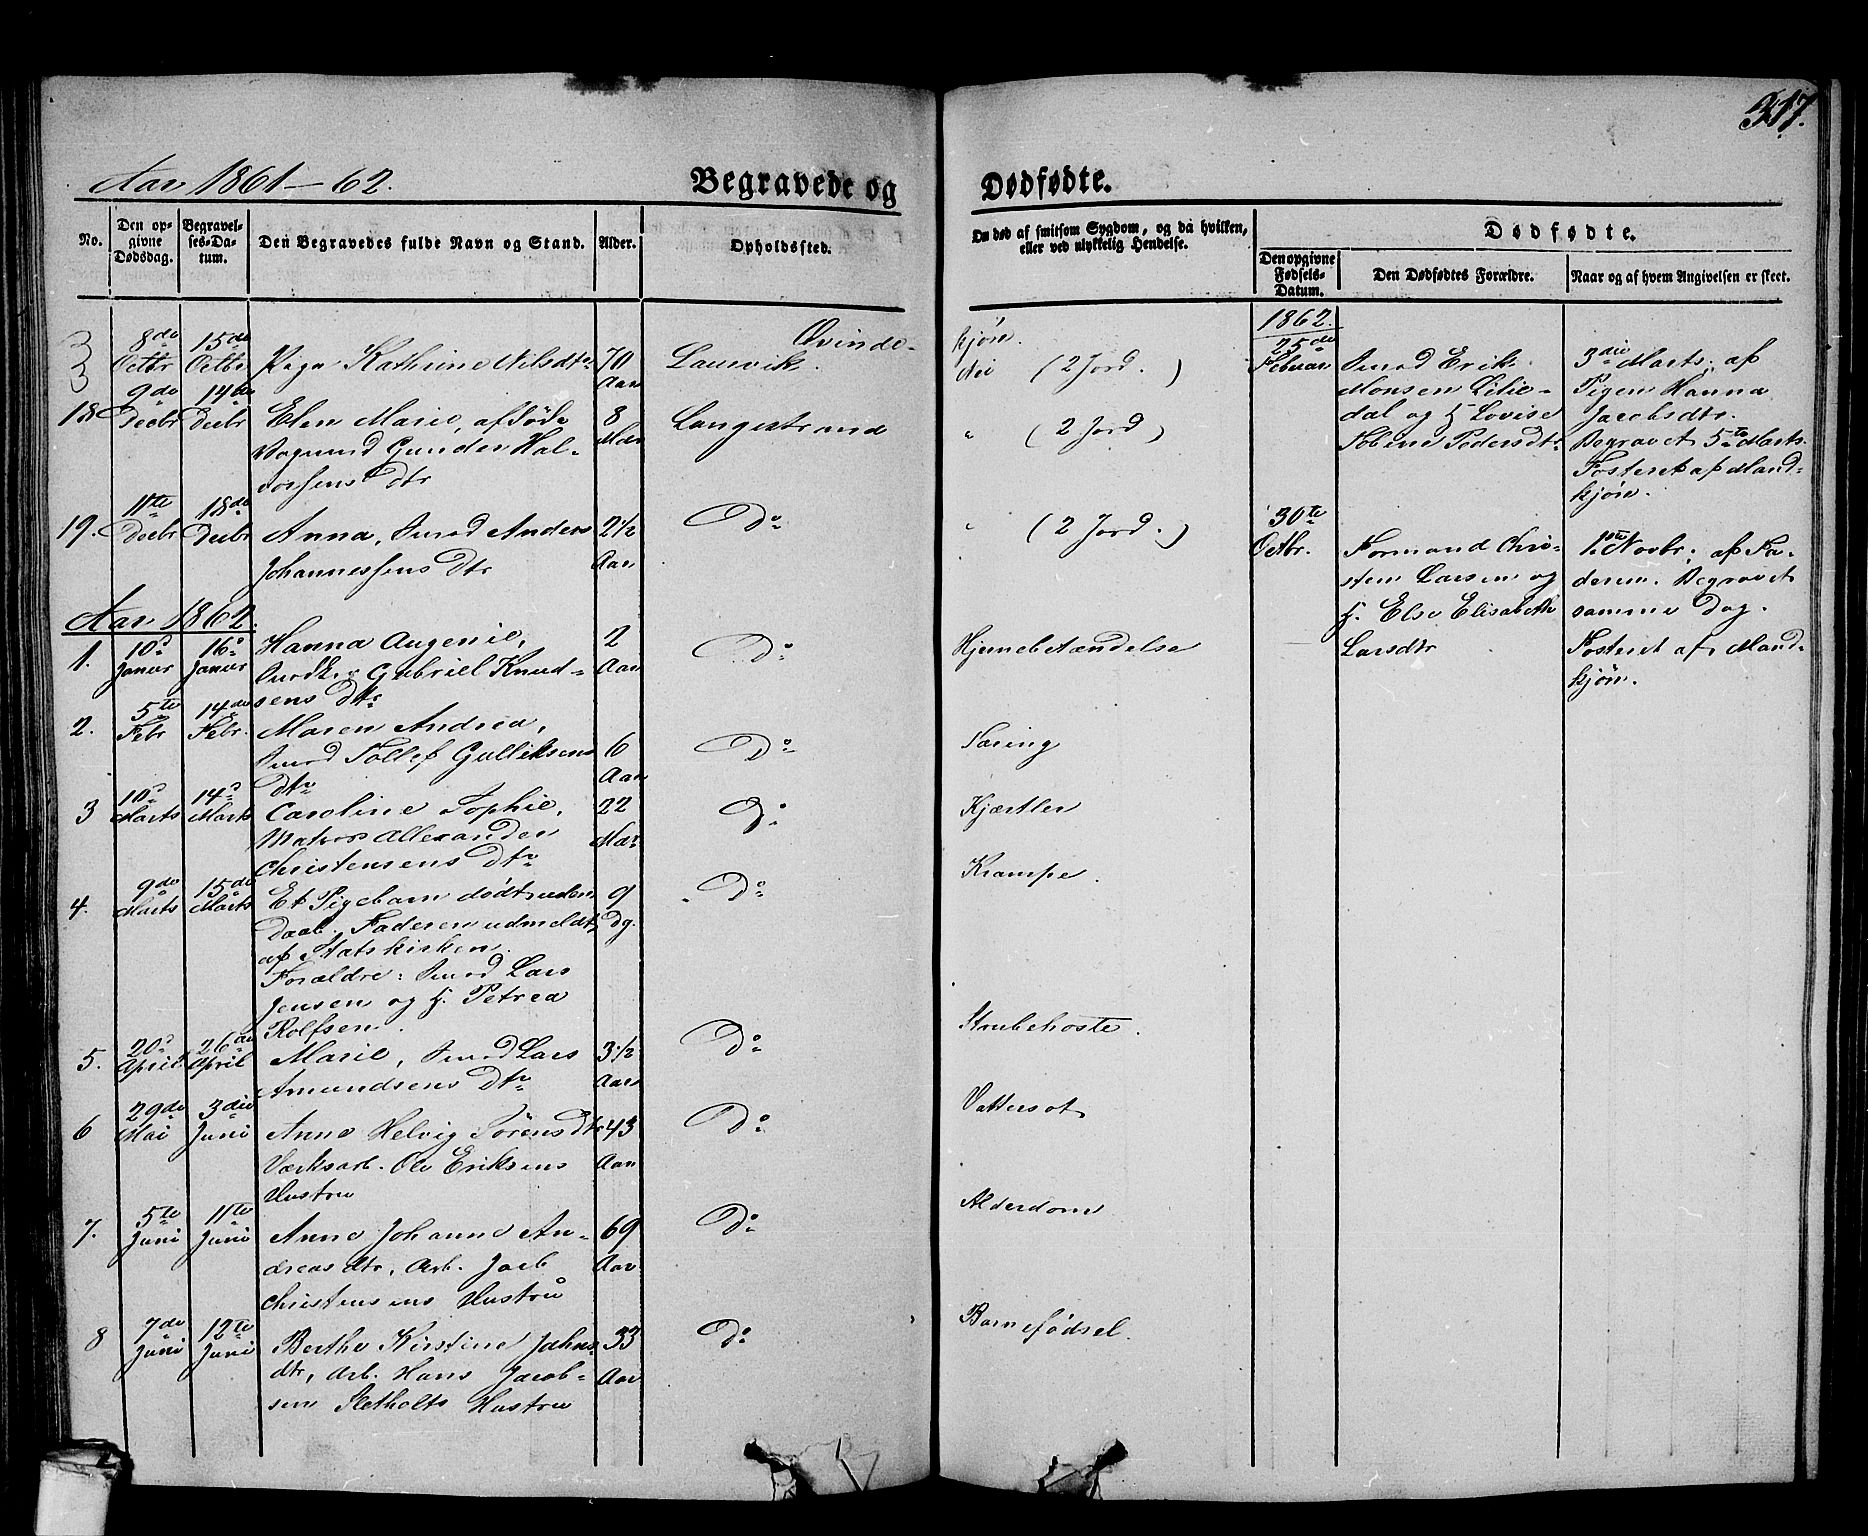 317.
Aar 1861-62.
Begravede og
Dødfødte.
No.
Den opgivne Dødsdag.
Begravelses-Datum.
Den Begravedes fulde Navn og Stand.
Alder.
Opholdssted.
Om død af smitsom Sygdom, og da hvilken,
eller ved ulykkelig Hendelse.
Dødfødte.
Den opgivne Fødsels-Datum.
Den Dødfødtes Forældre.
Naar og af hvem Angivelsen er skeet.
Qvinde-
kjøn.
8de Octbr 15de Octbr Pige Kathrine Nilsdtr 70 Aar Laurvik. Nei (2 Jord.)
18 9de Decbr 14de Decbr Elen Marie, afdøde 8 Mdr Langestrand " (2 Jord)
Vognmd Gunder Hal-
vorsens Dtr
19. 11te Decbr 18de Decbr Anna, Smed Anders 2 1/2 Aar Do " (2 Jord.)
Johannessens Dtr
Aar 1862.
1. 10d Januar 16d Januar Hanna Augenie, 2 Aar Do Hjernebetændelse
Smedk. Gabriel Knud-
sens Dtr
2. 5te Febr 14de Febr. Maren Andrea, 6 Aar Do Tæring
Smed Tollef Gulliksens
Dtr
3 10d Marts 14d Marts Caroline Sophie, 22 Mdr Do Kjærtler
Matros Allexander
Christensens Dtr
4. 9de Marts 15de Marts Et Pigebarn dødt uden 9 Dg. Do Krampe.
Daab. Faderen udmeldt
af Statskirken.
Forældre: Smed Lars
Jensen og H. Petrea
Rolfsen.
5. 20d April 26de April Marie, Smed Lars 3 1/2 Aar Do Strubehoste.
Amundsens Dtr
6 29de Mai 3die Juni Anne Helvig Sørensdtr 43 Aar Do Vattersot
Værksarb. Ole Eriksens
Hustru
7. 5te Juni 11te Juni Anne Johanne An- 69 Aar Do Alderdom
dreasdtr, Arb. Jacb
Christensens Hustru
8 7de Juni 12te Juni Berthe Kirstine Jahns- 33 Aar Do Barnefødsel.
dtr, Arb. Hans Jacob-
sen Sletholts Hustru
1862.
25de Februar
Smed Erik
Monsen Lilie-
dal og H. Lovise
Tobine Pedersdtr
3die Marts, af
Pigen Hanna
Jacobsdtr.
Begravet 5te Marts
Fosteret af Mand-
kjøn.
30te Octbr.
Formand Chri-
sten Larsen og
H. Else Elisabeth
Larsdtr
1ste Novbr. af Fa-
deren. Begravet
samme Dag.
Fosteret af Mand-
kjøn.